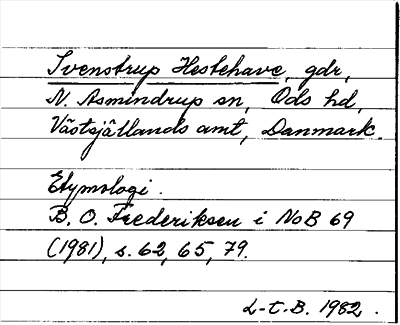 Svenstrup Hestehave, gdr,
N. Asmindrup sn, Ods hd,
Västsjällands amt, Danmark.
Etymologi.
B. O. Frederiksen i NoB 69
(1981), s. 62, 65, 79.
L-t-B. 1982.